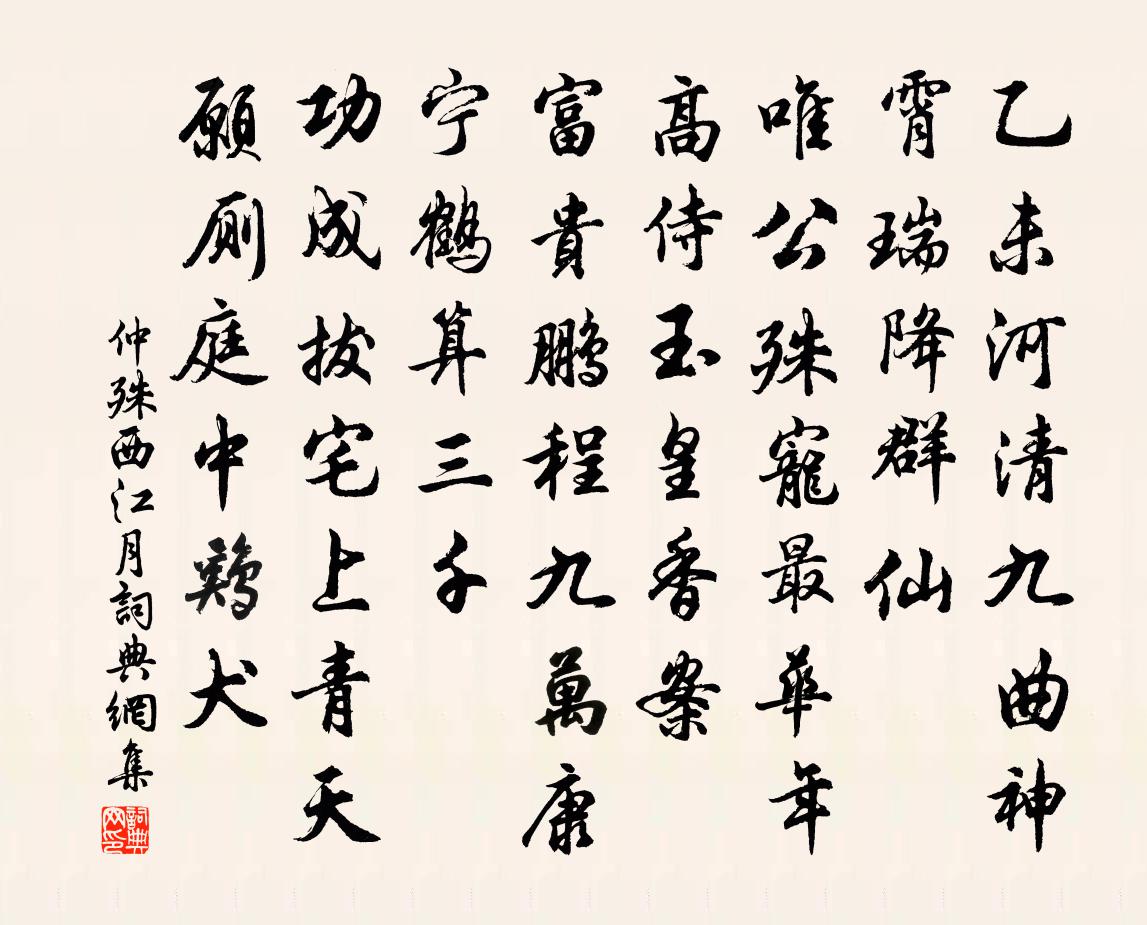 乙未河清九曲神
霄瑞降群仙
唯公殊寵最華年
高侍玉皇香案
富貴鵬程九萬康
宁鶴算三千
功成拔宅上青天
願厠庭中鷄犬
仲殊西江月詞典網集
詞典網印